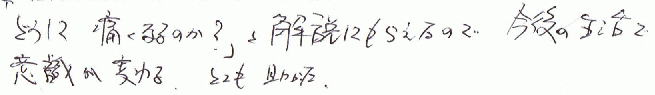 どうして痛くなるのか?」と解説してもらえるので 今後の生活で
意識が変わる。とても助かった。